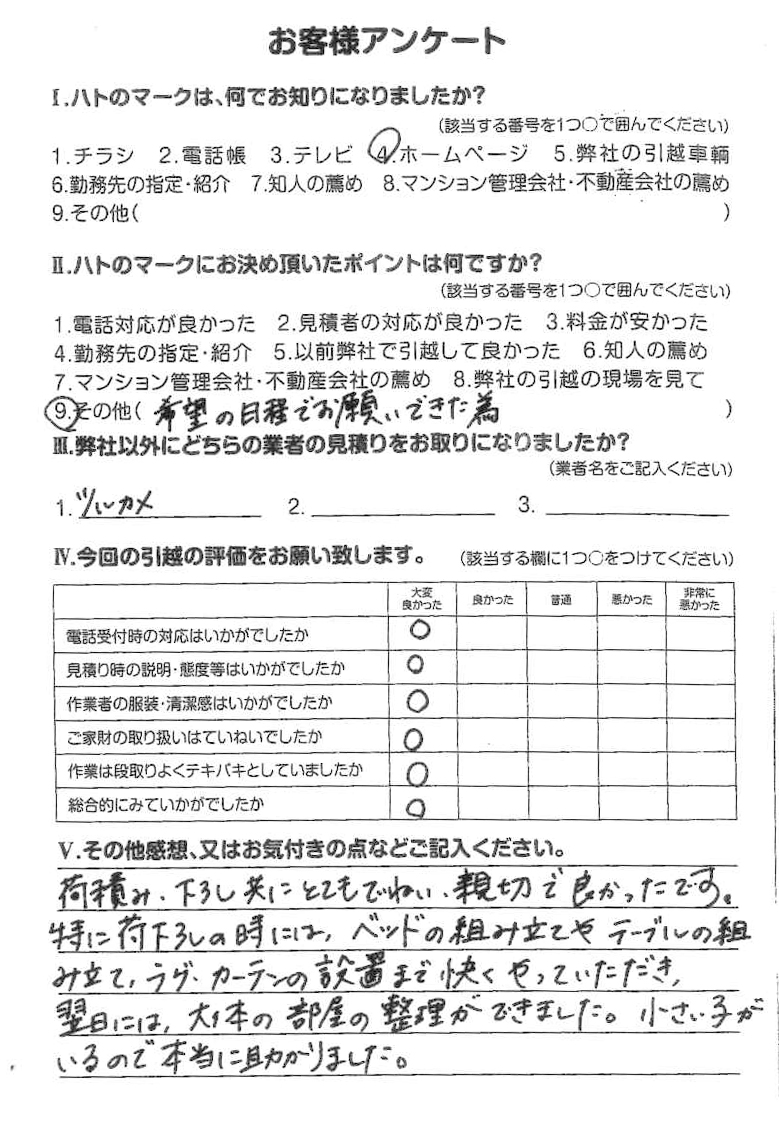 お客様アンケート
Ⅰ.ハトのマークは、何でお知りになりましたか?
(該当する番号を1つ○で囲んでください)
1.チラシ 2.電話帳 3.テレビ 4.ホームページ 5.弊社の引越車輌
6.勤務先の指定・紹介 7.知人の薦め 8.マンション管理会社・不動産会社の薦め
9.その他( )
Ⅱ.ハトのマークにお決め頂いたポイントは何ですか?
(該当する番号を1つ○で囲んでください)
1.電話対応が良かった 2.見積者の対応が良かった 3.料金が安かった
4.勤務先の指定・紹介 5.以前弊社で引越して良かった 6.知人の薦め
7.マンション管理会社・不動産会社の薦め 8.弊社の引越の現場を見て
9.その他( 希望の日程でお願いできた為 )
Ⅲ.弊社以外にどちらの業者の見積りをお取りになりましたか?
(業者名をご記入ください)
1. ツルカメ 2. 3.
Ⅳ.今回の引越の評価をお願い致します。 (該当する欄に1つ○をつけてください)
大変良かった 良かった 普通 悪かった 非常に悪かった
電話受付時の対応はいかがでしたか ○
見積り時の説明・態度等はいかがでしたか ○
作業者の服装・清潔感はいかがでしたか ○
ご家財の取り扱いはていねいでしたか ○
作業は段取りよくテキパキとしていましたか ○
総合的にみていかがでしたか ○
Ⅴ.その他感想、又はお気付きの点などご記入ください。
荷積み、下ろし共にとてもでねい、親切で良かったです。
特に荷下ろしの時には、ベッドの組み立てやテーブルの組
み立て、ラグ・カーテンの設置まで快くやっていただき、
翌日には、大体の部屋の整理ができました。小さい子が
いるので本当に助かりました。